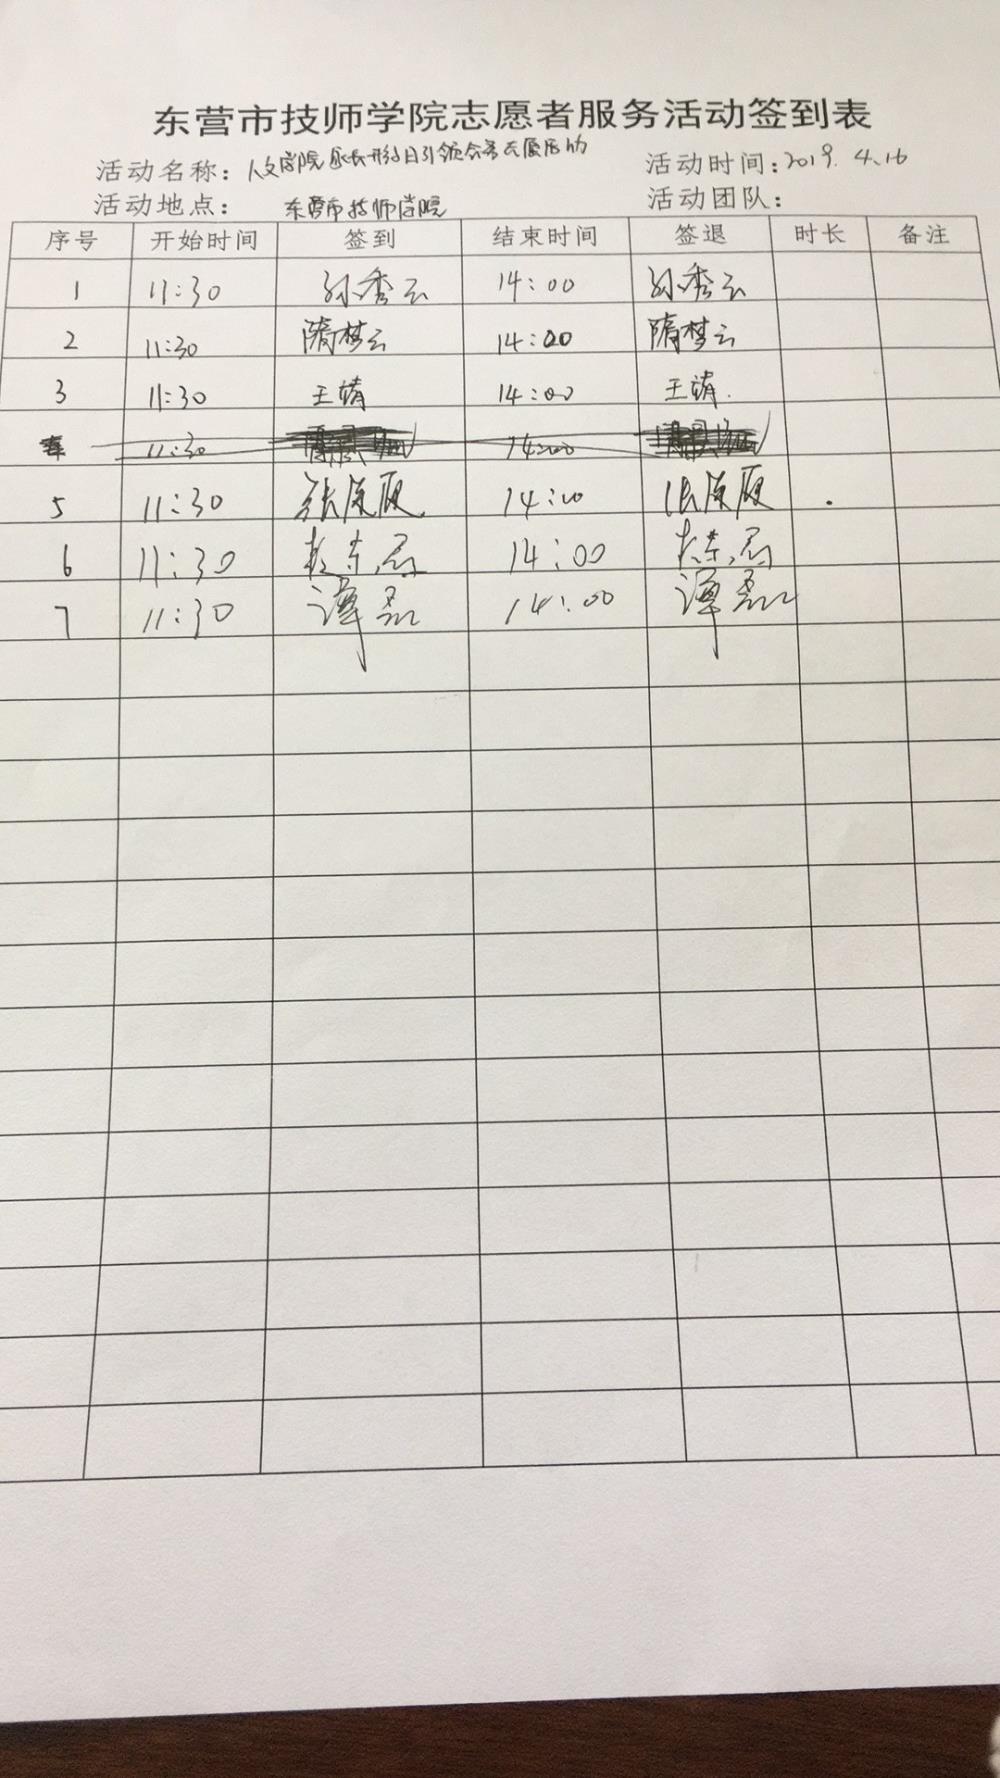 东营市技师学院志愿者服务活动签到表
活动名称：人文学院 引领 志愿活动 活动时间：2019. 4.16
活动地点： 东营市技师学院 活动团队：
序号 开始时间 签到 结束时间 签退 时长 备注
1 11:30 孙秀云 14:00 孙秀云
2 11:30 隋梦云 14:00 隋梦云
3 11:30 王靖 14:00 王靖.
11:30 14:00
5 11:30 张原愿 14:00 张原愿
6 11:30 14:00
7 11:30 谭磊 14:00 谭磊